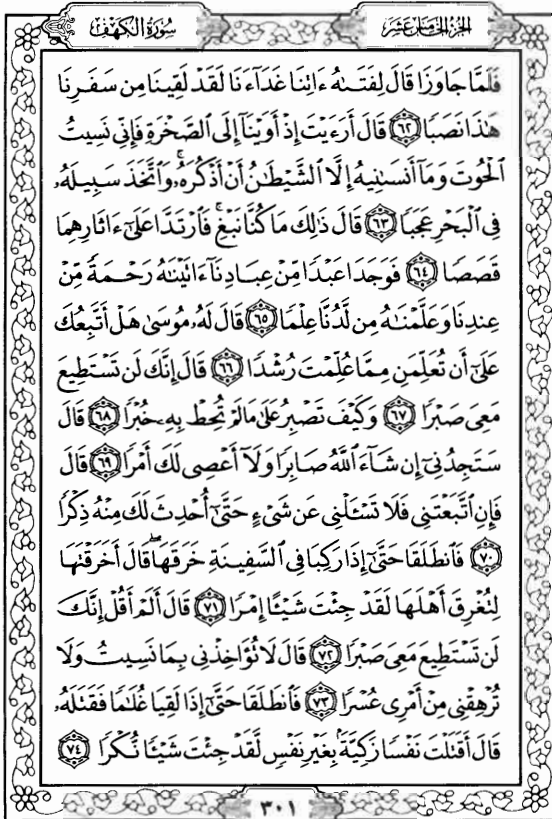 سُورَةُ الكَهْفِ
الجُزْءُ الخَامِسَ عَشَرَ
فَلَمَّا جَاوَزَا قَالَ لِفَتَىٰهُ ءَاتِنَا غَدَآءَنَا لَقَدْ لَقِينَا مِن سَفَرِنَا
هَٰذَا نَصَبًا ٦٢ قَالَ أَرَءَيْتَ إِذْ أَوَيْنَآ إِلَى ٱلصَّخْرَةِ فَإِنِّى نَسِيتُ
ٱلْحُوتَ وَمَآ أَنسَىٰنِيهُ إِلَّا ٱلشَّيْطَٰنُ أَنْ أَذْكُرَهُۥۚ وَٱتَّخَذَ سَبِيلَهُۥ
فِى ٱلْبَحْرِ عَجَبًا ٦٣ قَالَ ذَٰلِكَ مَا كُنَّا نَبْغِۚ فَٱرْتَدَّا عَلَىٰٓ ءَاثَارِهِمَا
قَصَصًا ٦٤ فَوَجَدَا عَبْدًا مِّنْ عِبَادِنَآ ءَاتَيْنَٰهُ رَحْمَةً مِّنْ
عِندِنَا وَعَلَّمْنَٰهُ مِن لَّدُنَّا عِلْمًا ٦٥ قَالَ لَهُۥ مُوسَىٰ هَلْ أَتَّبِعُكَ
عَلَىٰٓ أَن تُعَلِّمَنِ مِمَّا عُلِّمْتَ رُشْدًا ٦٦ قَالَ إِنَّكَ لَن تَسْتَطِيعَ
مَعِىَ صَبْرًا ٦٧ وَكَيْفَ تَصْبِرُ عَلَىٰ مَا لَمْ تُحِطْ بِهِۦ خُبْرًا ٦٨ قَالَ
سَتَجِدُنِىٓ إِن شَآءَ ٱللَّهُ صَابِرًا وَلَآ أَعْصِى لَكَ أَمْرًا ٦٩ قَالَ
فَإِنِ ٱتَّبَعْتَنِى فَلَا تَسْـَٔلْنِى عَن شَىْءٍ حَتَّىٰٓ أُحْدِثَ لَكَ مِنْهُ ذِكْرًا
٧٠ فَٱنطَلَقَا حَتَّىٰٓ إِذَا رَكِبَا فِى ٱلسَّفِينَةِ خَرَقَهَاۖ قَالَ أَخَرَقْتَهَا
لِتُغْرِقَ أَهْلَهَا لَقَدْ جِئْتَ شَيْـًٔا إِمْرًا ٧١ قَالَ أَلَمْ أَقُلْ إِنَّكَ
لَن تَسْتَطِيعَ مَعِىَ صَبْرًا ٧٢ قَالَ لَا تُؤَاخِذْنِى بِمَا نَسِيتُ وَلَا
تُرْهِقْنِى مِنْ أَمْرِى عُسْرًا ٧٣ فَٱنطَلَقَا حَتَّىٰٓ إِذَا لَقِيَا غُلَٰمًا فَقَتَلَهُۥ
قَالَ أَقَتَلْتَ نَفْسًا زَكِيَّةًۢ بِغَيْرِ نَفْسٍ لَّقَدْ جِئْتَ شَيْـًٔا نُّكْرًا ٧٤
٣٠١